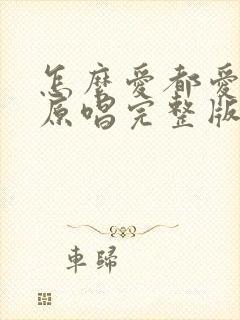 怎麼愛都愛
原唱完整版
車歸